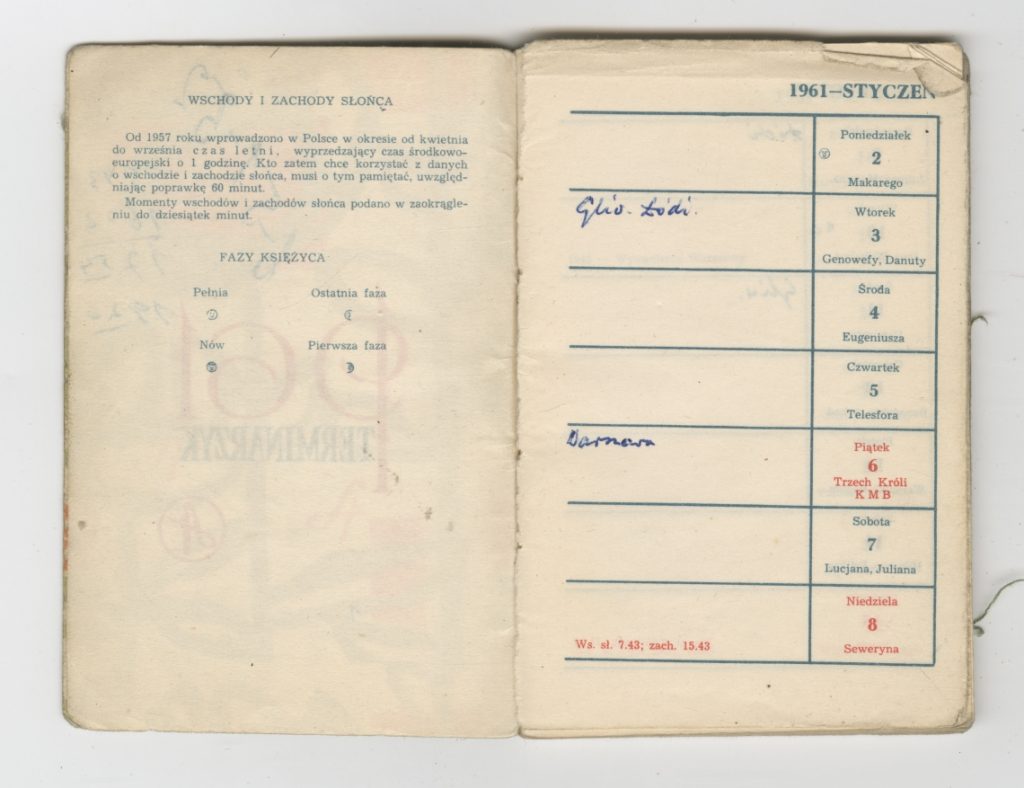 WSCHODY I ZACHODY SŁOŃCA
Od 1957 roku wprowadzono w Polsce w okresie od kwietnia
do września czas letni, wyprzedzający czas środkowo-
europejski o 1 godzinę. Kto zatem chce korzystać z danych
o wschodzie i zachodzie słońca, musi o tym pamiętać, uwzględ-
niając poprawkę 60 minut.
Momenty wschodów i zachodów słońca podano w zaokrągle-
niu do dziesiątek minut.
FAZY KSIĘŻYCA
Pełnia Ostatnia faza
Nów Pierwsza faza
TERMINARZYK
1961—STYCZEŃ
Poniedziałek
2
Makarego
Wtorek
3
Genowefy, Danuty
Środa
4
Eugeniusza
Czwartek
5
Telesfora
Piątek
6
Trzech Króli
K M B
Sobota
7
Lucjana, Juliana
Niedziela
8
Seweryna
Ws. sł. 7.43; zach. 15.43